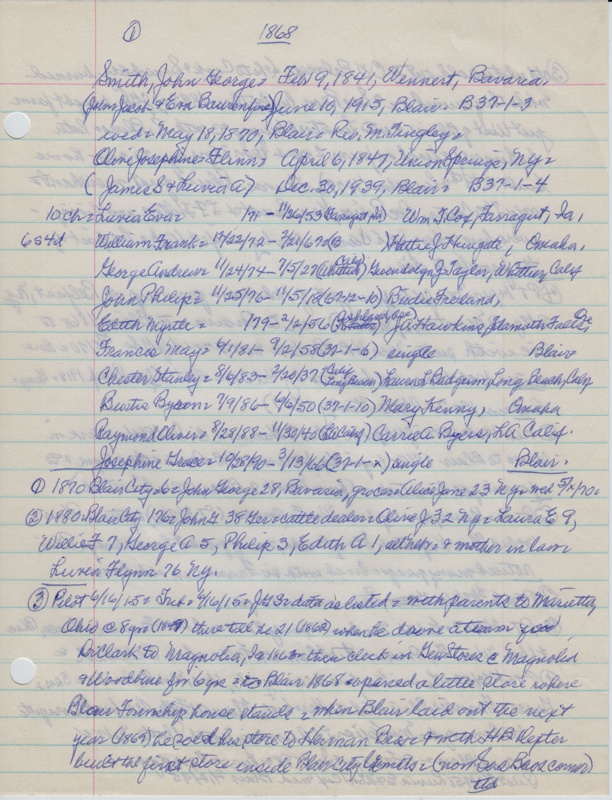 ① 1868
Smith, John George = Feb 9, 1841, Wennert, Bavaria,
(John Jacob & Eva Baurenfine) June 10, 1915, Blair = B37-1-3
wed = May 18, 1870, Blair = Rev. M. Tingley =
Olive Josephine = Flinn = April 6, 1847, Union Springs, Ny =
(James S & Luvia A) Dec. 30, 1939, Blair = B37-1-4
10 ch = Luvia Eva = 171 - 11/26/53 Wm T. Cox, Farragut, Ia,
6s 4d William Frank = 12/22/72 - Hattie J Hungate, Omaha,
George Andrew = 11/24/74 - 7/5/27 (Whittier Calif) Gwendolyn J Taylor, Whittier, Calif
John Philip = 11/25/76 - 11/5/18 (67-12-10) Birdie Freeland,
Edith Myrtle = 179 - 2/2/56 J. A. Hawkins, Klamoth Falls, Ore
Francis May = 4/1/81 - 9/2/58 (37-1-6) single Blair
Chester Stanley = 8/6/83 - 2/20/37 (Calif Long Beach) Laura L Padgum, Long Beach, Calif
Burtis Byron = 7/9/86 - 6/6/50 (37-1-10) Mary Kenny, Omaha
Raymond Oliver = 8/28/88 - 11/30/40 Carrie A Byers, LA Calif.
Josephine Grace = 10/28/90 - 3/13/66 (37-1-2) single Blair.
① 1870 Blair City 6 = John George 28, Bavaria, grocer = Olive Jose 23 Ny = wed 5/x/70 =
② 1880 Blair City 176 = John G 38 Ger = cattle dealer = Olive J 32 Ny = Laura E 9,
Willie F 7, George A 5, Philip 3, Edith A 1, all neb = & mother in law
Luvia Flynn 76 Ny.
③ Pilot 6/16/15 = Trib = 6/16/15 = JGS = data as listed = with parents to Marietta,
Ohio @ 8 yrs (1849) there till he 21 (1862) when he drove a team
Dillark to Magnolia, Ia 1862 = then clerk in Gen Stores @ Magnolia
& Woodbine for 6 yrs = to Blair 1868 = opened a little store where
Blair Township house stands = when Blair laid out the next
year (1869) he sold his store to Herman & with H B Depter
built the first store inside Blair City Limits = (now corner)